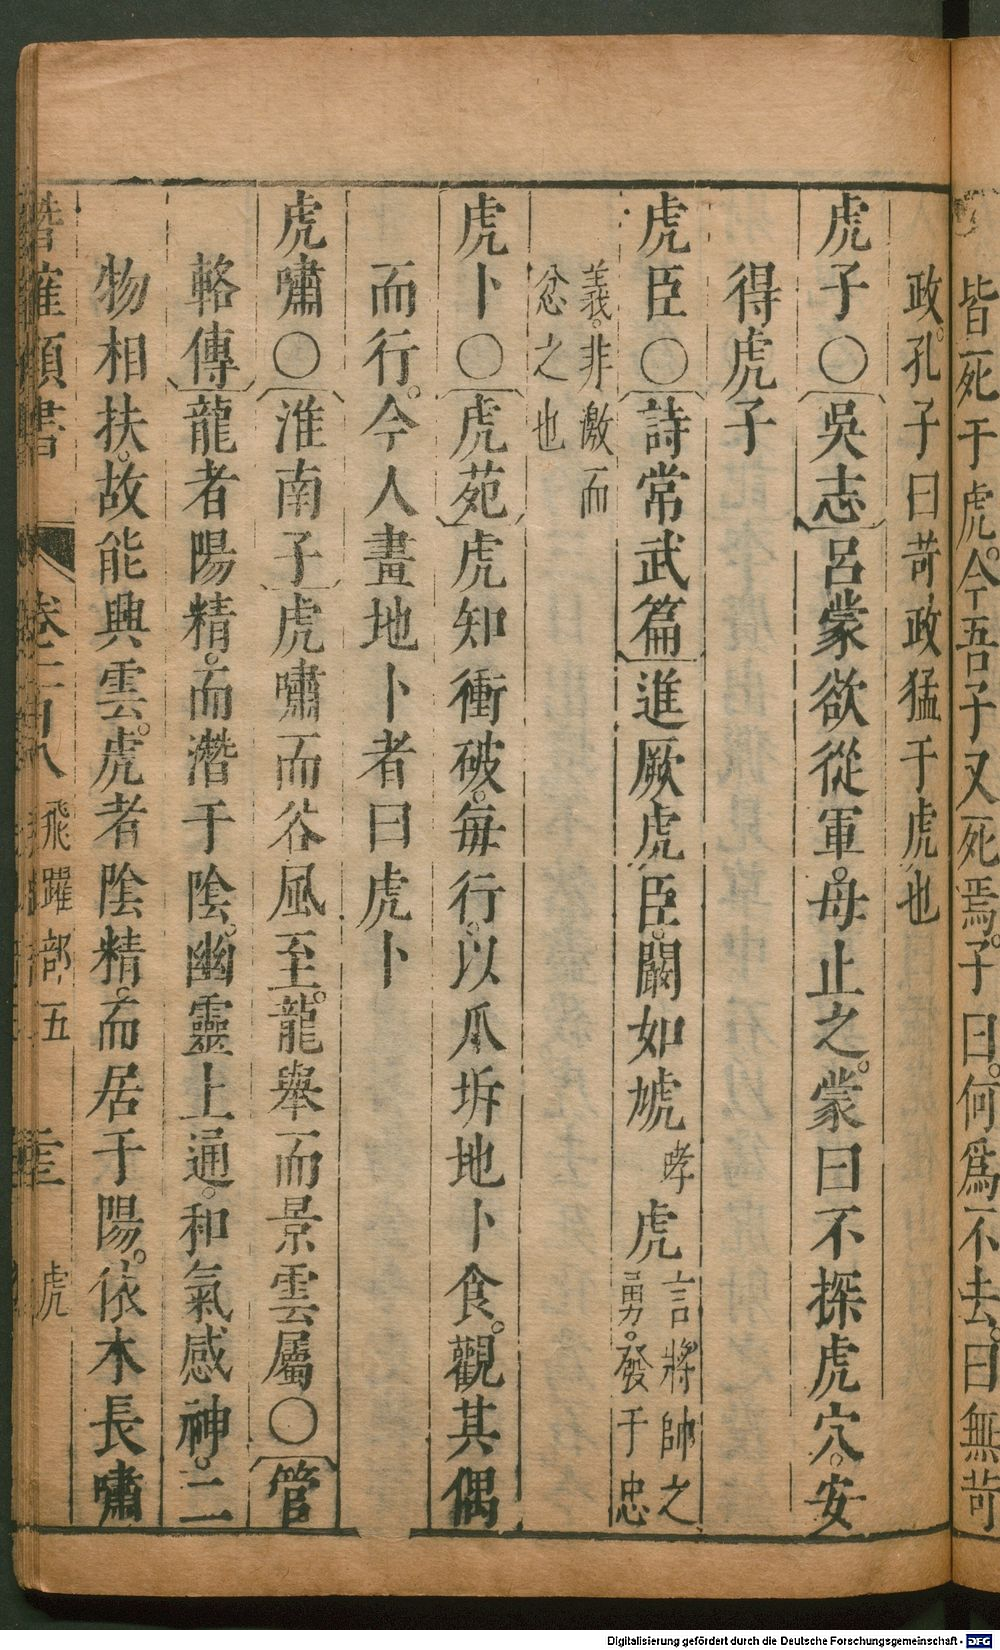 皆死于虎。今吾子又死焉。子曰。何爲不去。曰無苛
政。孔子曰苛政猛于虎也
虎子○吳志呂蒙欲從軍。母止之。蒙曰不探虎穴。安
得虎子
虎臣○詩常武篇進厥虎臣。闞如虓哮虎言將帥之勇。發于忠
義。非激而忿之也
虎卜○虎苑虎知衝破。每行。以爪坼地卜食。觀其偶
而行。今人畫地卜者曰虎卜
虎嘯○淮南子虎嘯而谷風至。龍舉而景雲屬○管
輅傳龍者陽精。而潛于陰。幽靈上通。和氣感神。二
物相扶。故能興雲。虎者陰精。而居于陽。依木長嘯
潛確類書 卷一百八 飛躍部五 虎
Digitalisierung gefördert durch die Deutsche Forschungsgemeinschaft - DFG